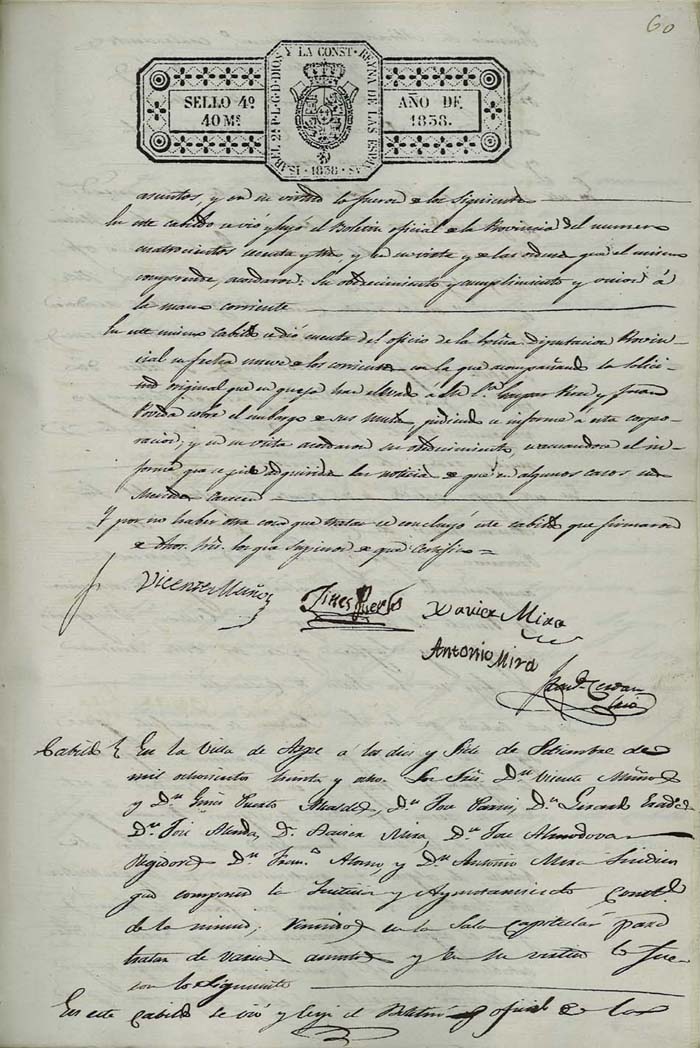 60
ISABEL 2ª P.L.G.D. DIOS Y LA CONST. REYNA DE LAS ESPAÑAS
1838
SELLO 4º
40 Ms
AÑO DE
1838.
asuntos, y en su virtud lo fueron de los siguientes
En este cabildo se vió y leyó el Boletin oficial de la Provincia del numero
cuatrocientos y tres, y en su vista y de las ordenes que el mismo
comprende, acordaron: Su obedecimiento y cumplimiento y á
la mano corriente
En este mismo cabildo se dió cuenta del oficio de la Diputacion Provin-
cial su fecha nueve de los corrientes en la que acompañando la solici-
tud original que en queja han elevado a S.M. Gaspar y Juan
sobre el embargo de sus, pidiendo se informe á esta corpo-
racion; y en su vista acordaron su obedecimiento, evacuandose el in-
forme que se pide adquiridas las noticias de que en algunos casos sus
Mercedes carecen
Y por no haber otra cosa que tratar se concluyó este cabildo que firmaron
de que certifico =
Vicente Muñoz
Gines Puerto
Xavier Mira
Antonio Mira
Cerdan
Srio
Cabildo En la Villa de Aspe á los diez y Siete de Setiembre de
mil ochocientos treinta y ocho. Los Sres. Dn. Vicente Muñoz
y Dn. Gines Puerto Alcaldes, Dn. Jose, Dn. Gerardo
Dn. José, D. Xavier Mira, Dn. Jose Almodovar
Regidores Dn. Franco. Alonso, y Dn. Antonio Mira Sindicos
que componen la Justicia y Ayuntamiento Constl.
de la misma, reunidos en la Sala capitular para
tratar de varios asuntos y en su virtud lo fue
ron los siguientes
En este Cabildo se vió y leyó el Boletin oficial de la